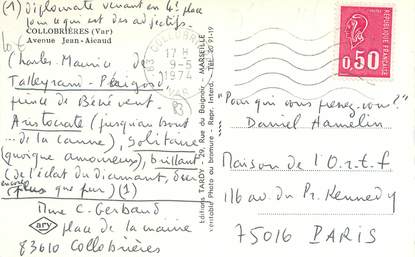 (1) diplomate venant en 4e place
pour ce qui est des adjectifs.
COLLOBRIÈRES (Var)
Avenue Jean-Aicaud
Charles-Maurice de
Talleyrand-Périgord
prince de Bénévent.
Aristocrate (jusqu'au bout
... de la canne), solitaire
(quoique amoureux), brillant
(de l'éclat du diamant, dur
encore plus que pur) (1)
Mme C. Gerbaud
place de la mairie
83610 Collobrières
ary
83 COLLOBRIÈRES
17 H
9-5
1974
VAR
Editions TARDY - 29, Rue du Baignoir - MARSEILLE
véritable Photo au bromure - Repr. Interd. - Tél. 20 51-19
0,50
"Pour qui vous prenez-vous?"
Daniel Hamelin
Maison de l'O.r.t.f
116 av. du Pr. Kennedy
75016 PARIS